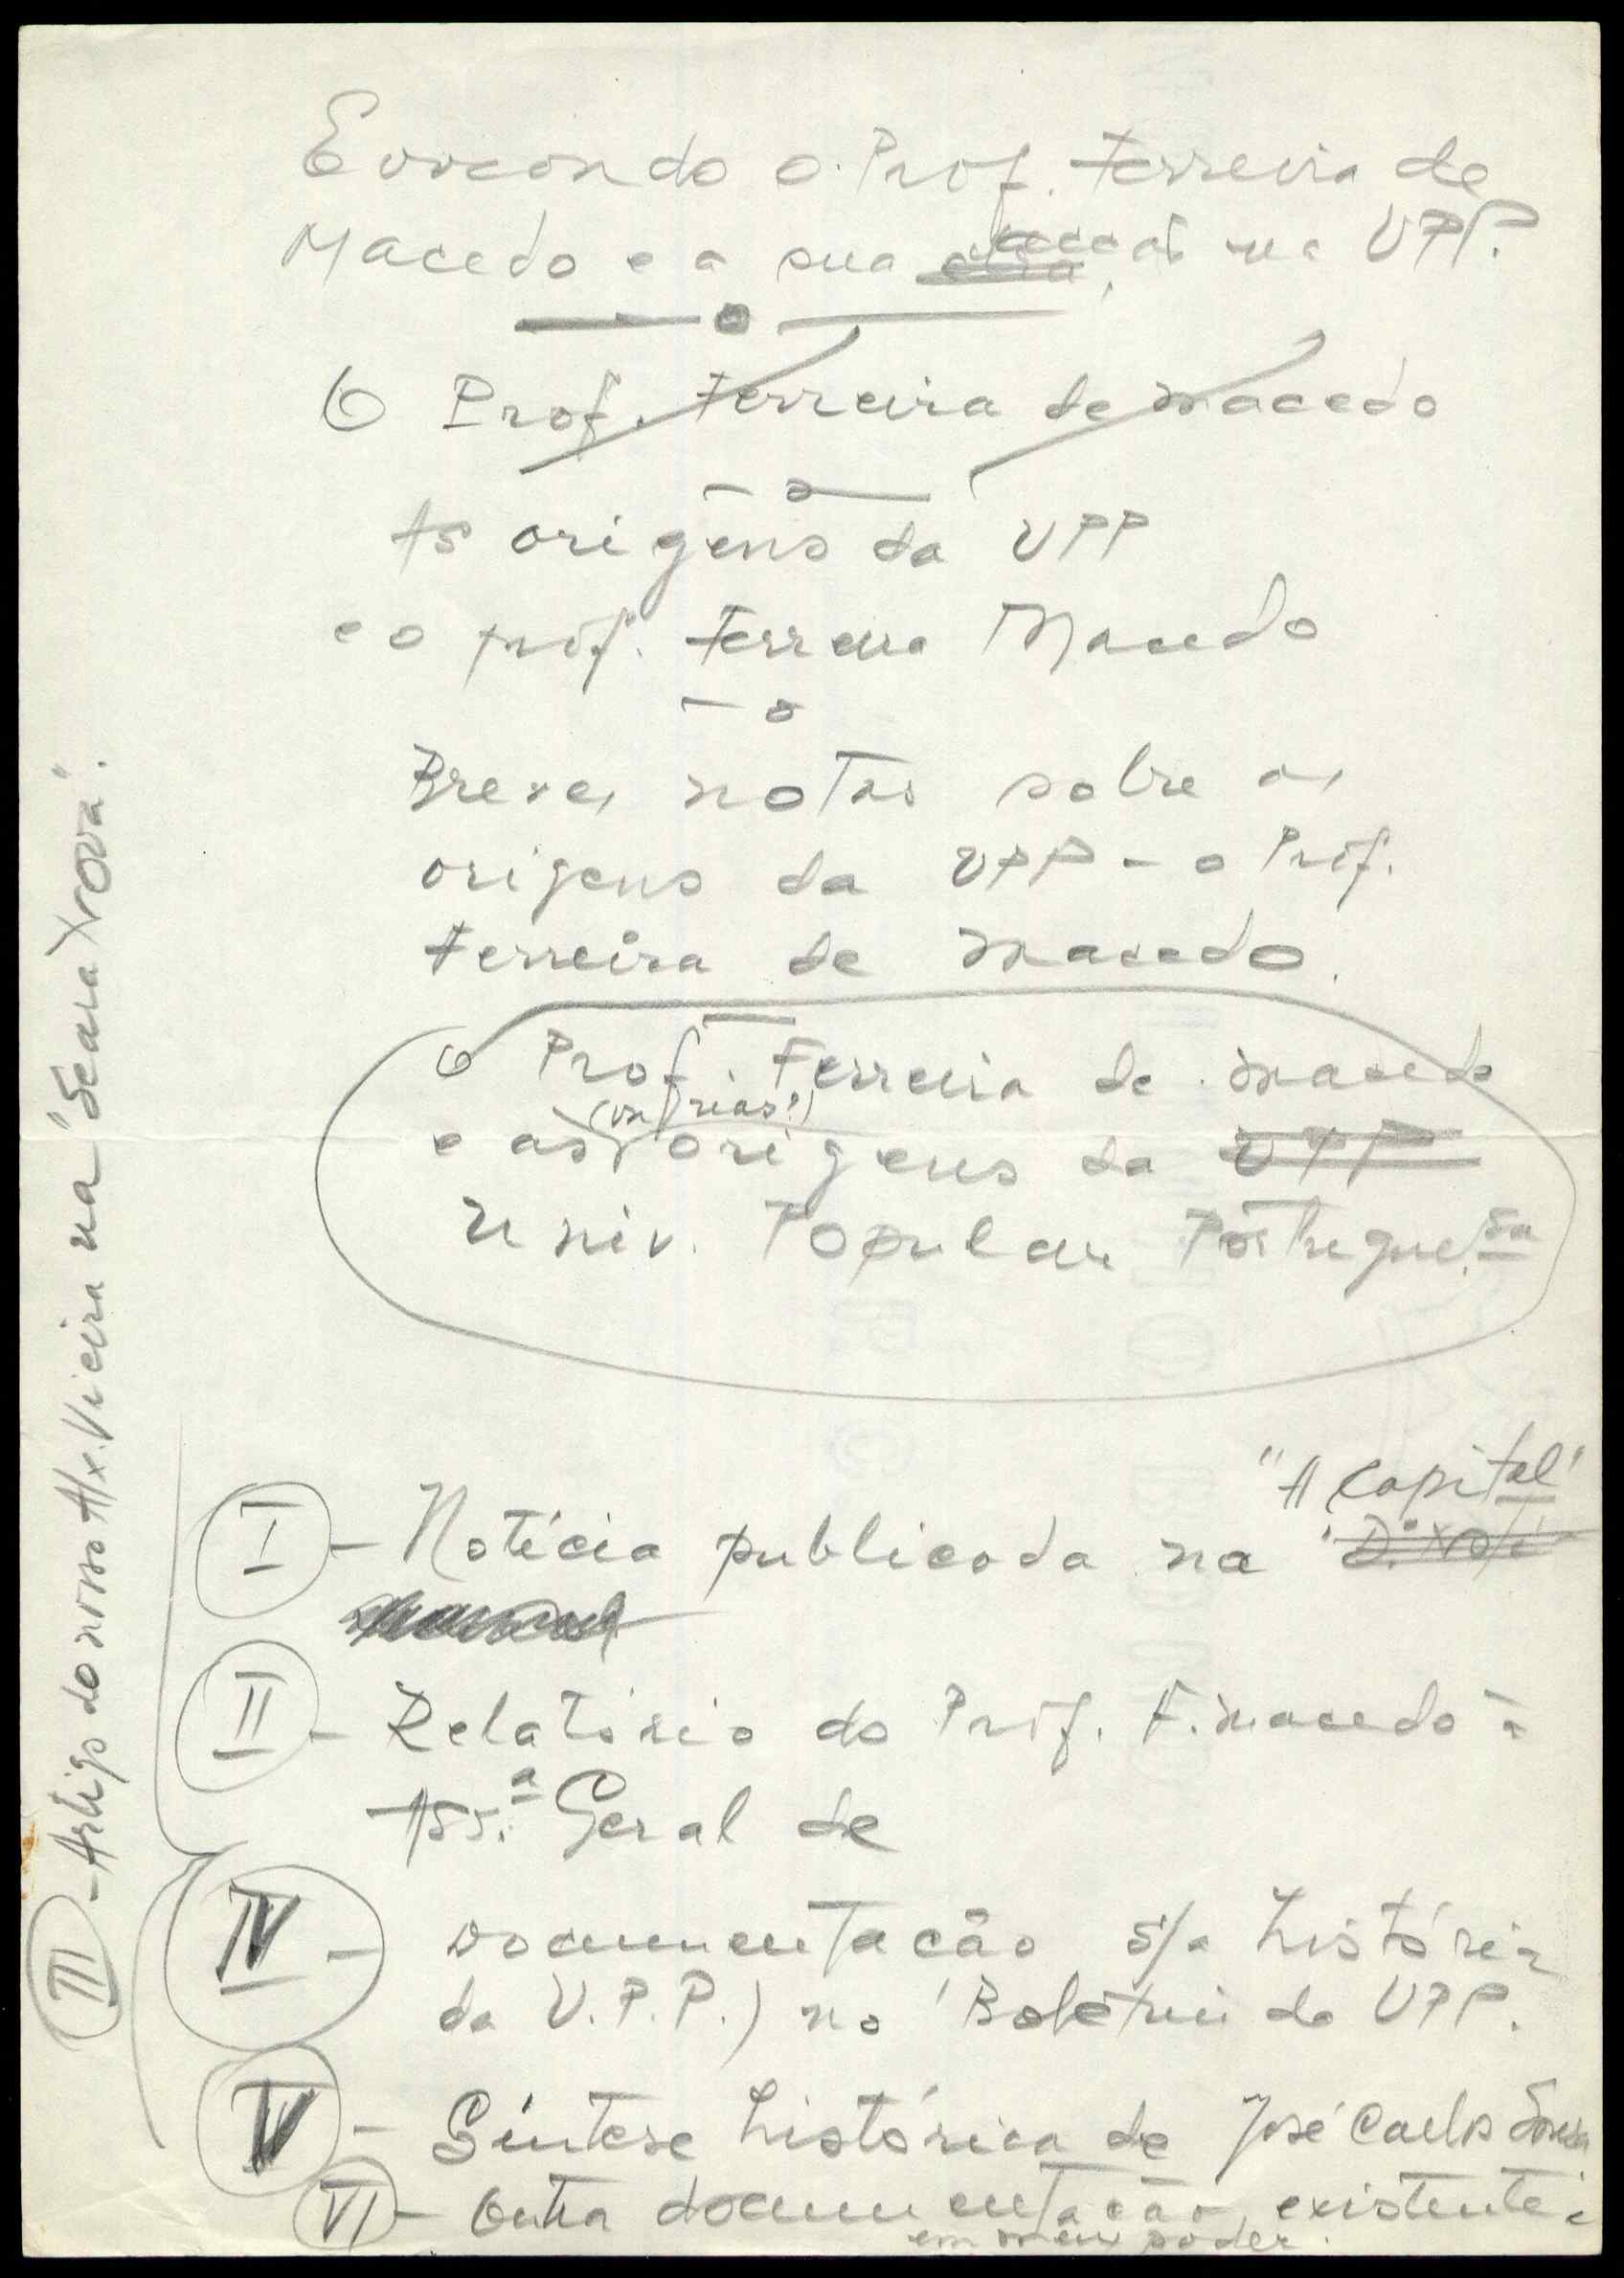 Evocando o Prof. Ferreira de
Macedo e a sua acção na UPP.
O Prof. Ferreira de Macedo
As origens da UPP
e o prof. Ferreira Macedo
Breves notas sobre as
origens da UPP - o Prof.
Ferreira de Macedo.
O Prof. Ferreira de Macedo
e as origens da UPP
Univ. Popular Portuguesa
"A Capital"
I - Notícia publicada na
II - Relatório do Prof. F. Macedo à
Ass.ª Geral de
III - Artigo do nosso Alx. Vieira na "Seara Nova".
IV - Documentação s/a história
da U.P.P.) no Boletim da UPP.
V - Síntese histórica de José Carlos Sousa
VI - Outra documentação existente
em meu poder.